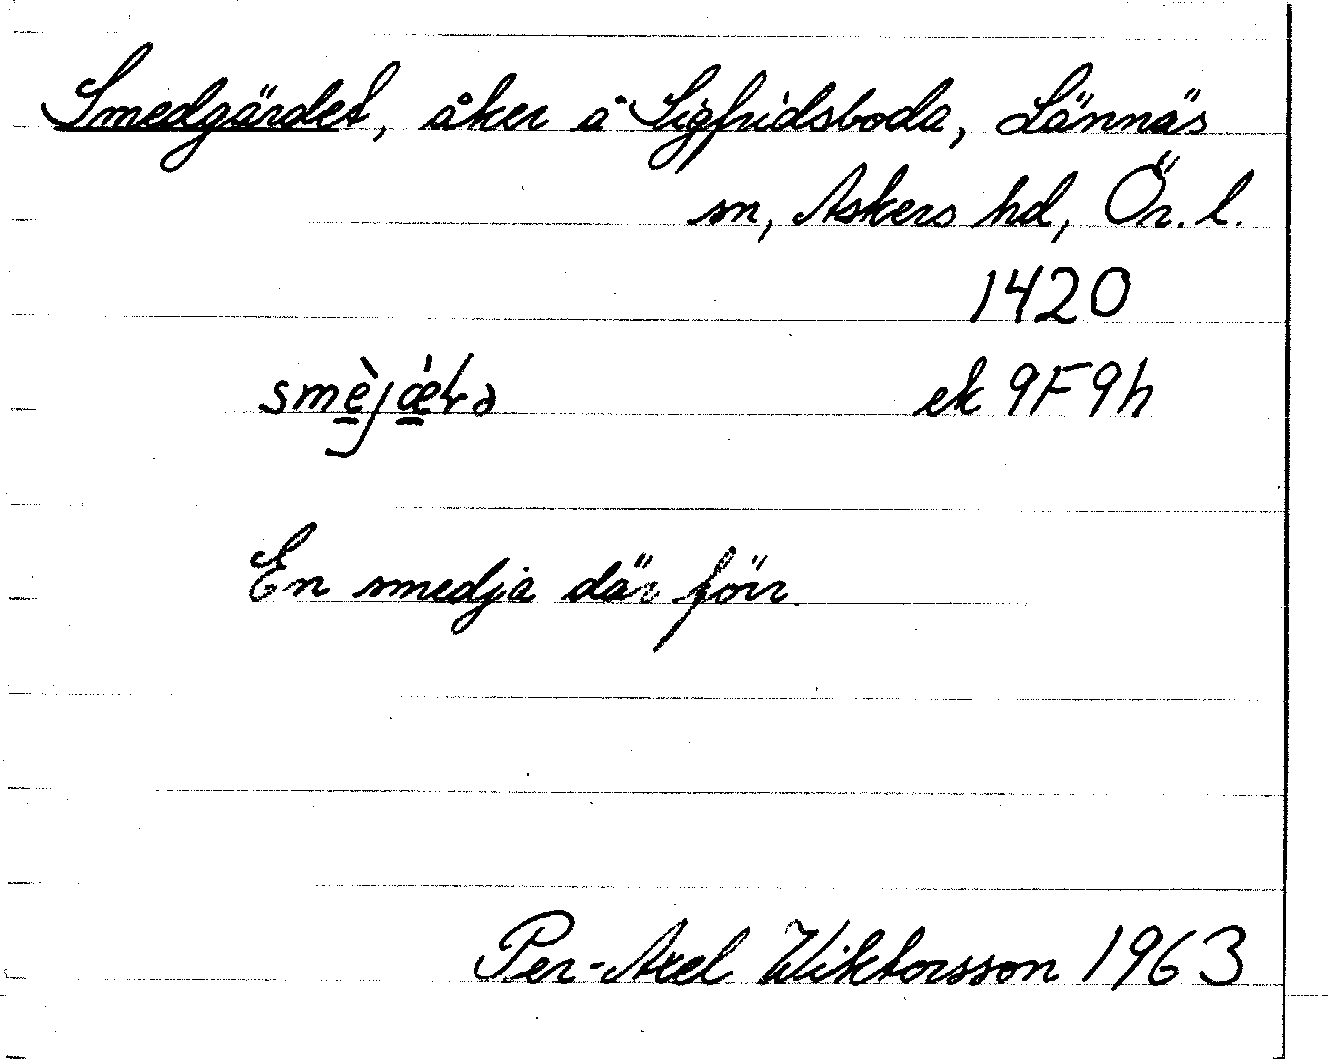 Smedgärdet, åker å Sigfridsboda, Lännäs
sn, Askers hd, Ör. l.
1420
ek 9F9h
En smedja där förr
Per-Axel Wiktorsson 1963